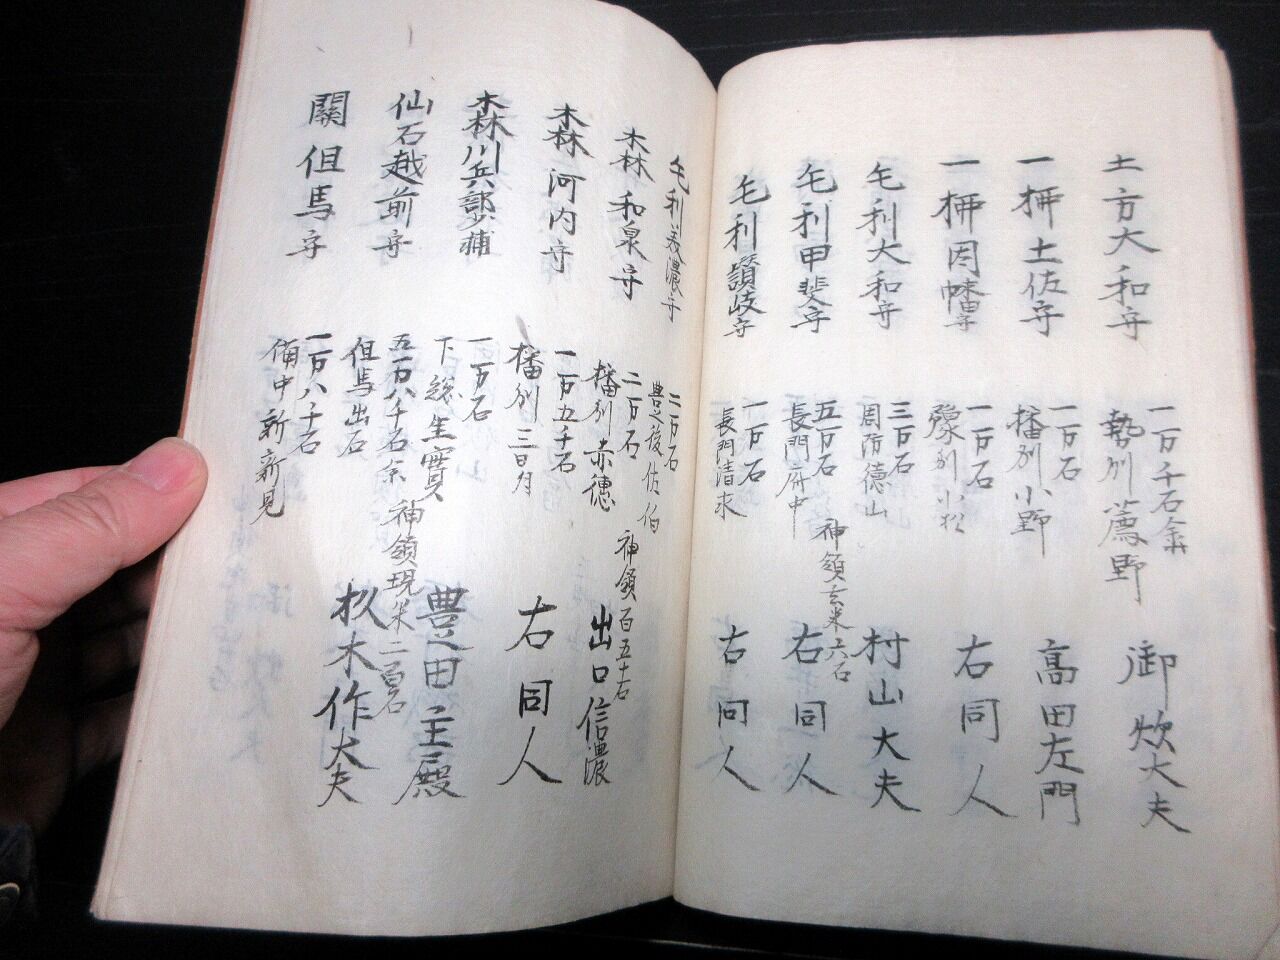 土方大和守
一万千石余
勢州薦野
御炊大夫
一柳土佐守
一万石
播州小野
高田左門
一柳因幡守
一万石
豫州小松
右同人
毛利大和守
三万石
周防徳山
村山大夫
毛利甲斐守
五万石
長門府中
神領玄米六石
右同人
毛利讃岐守
一万石
長門清末
右同人
毛利美濃守
二万石
豊後佐伯
神領百五十石
森和泉守
二万石
播州赤穂
出口信濃
森河内守
一万五千石
播州三日月
右同人
森川兵部少輔
一万石
下総生實
豊田主殿
仙石越前守
五万八千石余
但馬出石
神領現米二百石
杦木作大夫
關但馬守
一万八千石
備中新新見